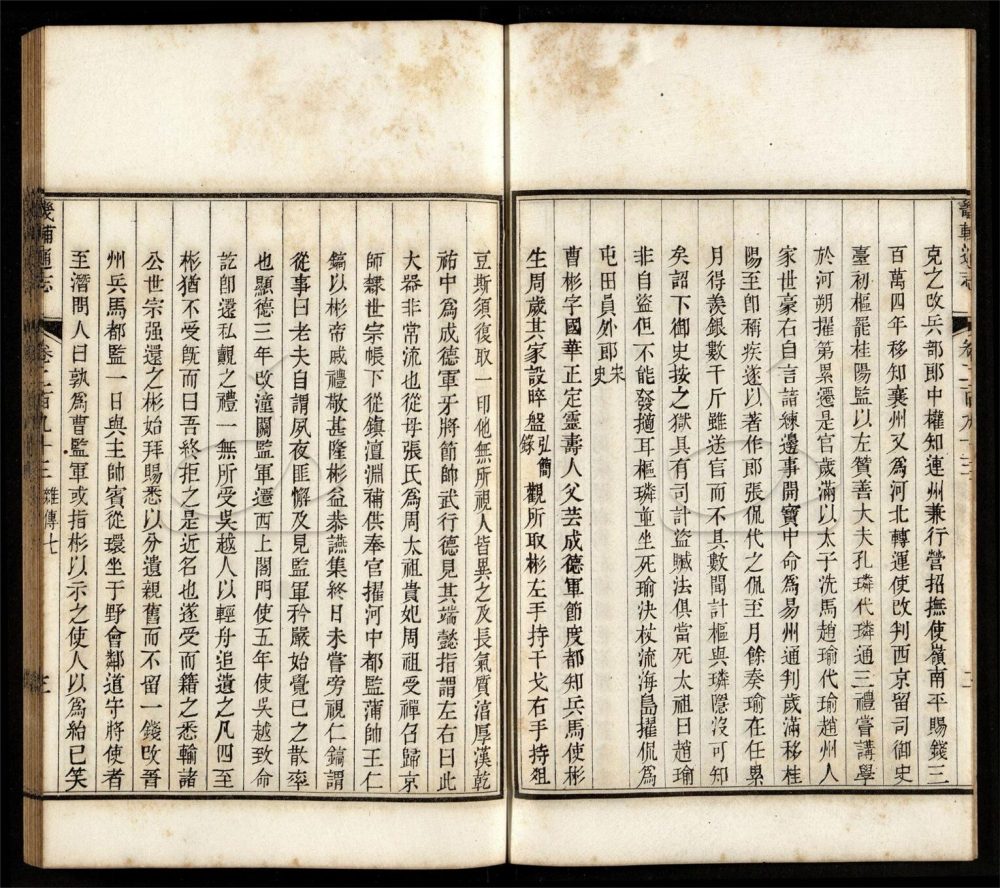 畿輔通志
克之改兵部郎中權知連州兼行營招撫使嶺南平賜錢三
百萬四年移知襄州又為河北轉運使改判西京留司御史
臺初樞罷桂陽監以左贊善大夫孔璘代璘通三禮嘗講學
於河朔擢第累遷是官歲滿以太子洗馬趙瑜代瑜趙州人
家世豪右自言諳練邊事開寶中命為易州通判歲滿移桂
陽至即稱疾遂以著作郎張侃代之侃至月餘奏瑜在任累
月得羨銀數千斤雖送官而不具數聞計樞與璘隱沒可知
矣詔下御史按之獄具有司計盜贓法俱當死太祖曰趙瑜
非自盜但不能發擿耳樞璘並坐死瑜決杖流海島擢侃為
屯田員外郎宋史
曹彬字國華正定靈壽人父芸成德軍節度都知兵馬使彬
生周歲其家設晬盤弘簡錄觀所取彬左手持干戈右手持俎
豆斯須復取一印他無所視人皆異之及長氣質湻厚漢乾
祐中為成德軍牙將節帥武行德見其端愨指謂左右曰此
大器非常流也從母張氏為周太祖貴妃周祖受禪召歸京
師隸世宗帳下從鎮澶淵補供奉官擢河中都監蒲帥王仁
鎬以彬帝戚禮敬甚隆彬益恭讌集終日未嘗旁視仁鎬謂
從事曰老夫自謂夙夜匪懈及見監軍矜嚴始覺已之散率
也顯德三年改潼關監軍遷西上閤門使五年使吳越致命
訖即還私覿之禮一無所受吳越人以輕舟追遺之凡四至
彬猶不受旣而曰吾終拒之是近名也遂受而籍之悉輸諸
公世宗强還之彬始拜賜悉以分遺親舊而不留一錢改晉
州兵馬都監一日與主帥賓從環坐于野會鄰道守將使者
至潛問人曰孰為曹監軍或指彬以示之使人以為紿已笑
畿輔通志 卷二百九十三 雜傳七